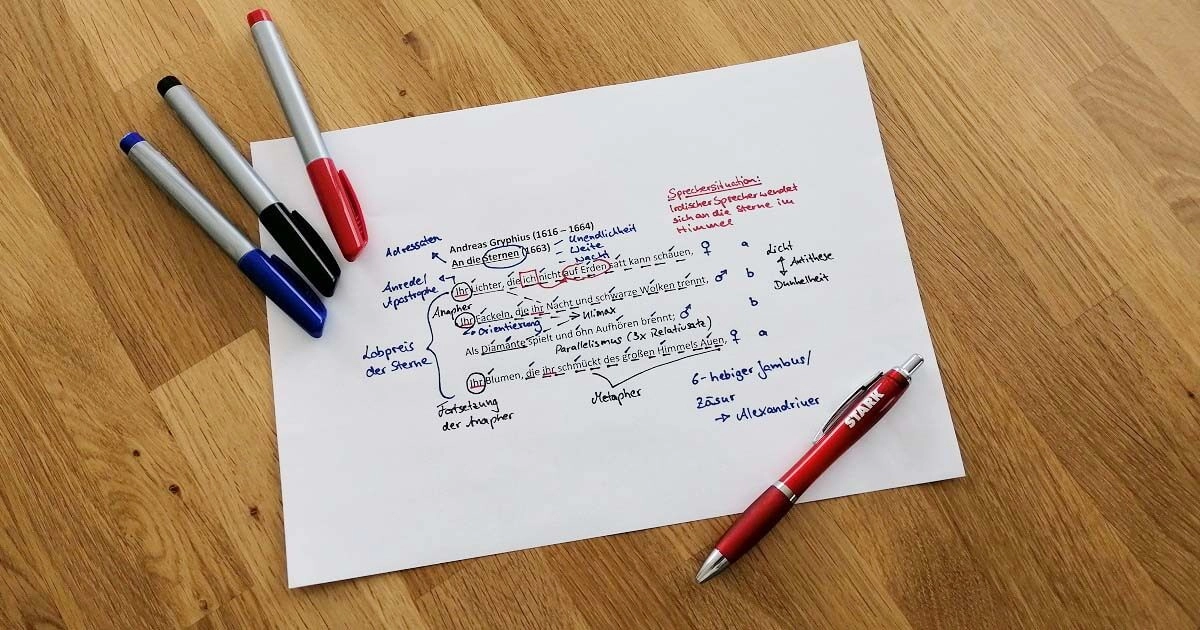 Sprechersituation:
Irdischer Sprecher wendet
sich an die Sterne im
Himmel
Adressaten
Andreas Gryphius (1616 – 1664)
An die Sternen (1663)
– Unendlichkeit
– Weite
– Nacht
Anrede/
Apostrophe
Ihr Lichter, die ich nicht auf Erden satt kann schauen, ♀ a
Licht
↕ Antithese
Dunkelheit
Anapher
Ihr Fackeln, die ihr Nacht und schwarze Wolken trennt, ♂ b
Orientierung
→ Klimax
Als Diamante spielt und ohn Aufhören brennt; ♂ b
Parallelismus (3x Relativsatz)
Lobpreis
der Sterne
Ihr Blumen, die ihr schmückt des großen Himmels Auen, ♀ a
Fortsetzung
der Anapher
Metapher
6-hebiger Jambus/
Zäsur
→ Alexandriner
STARK